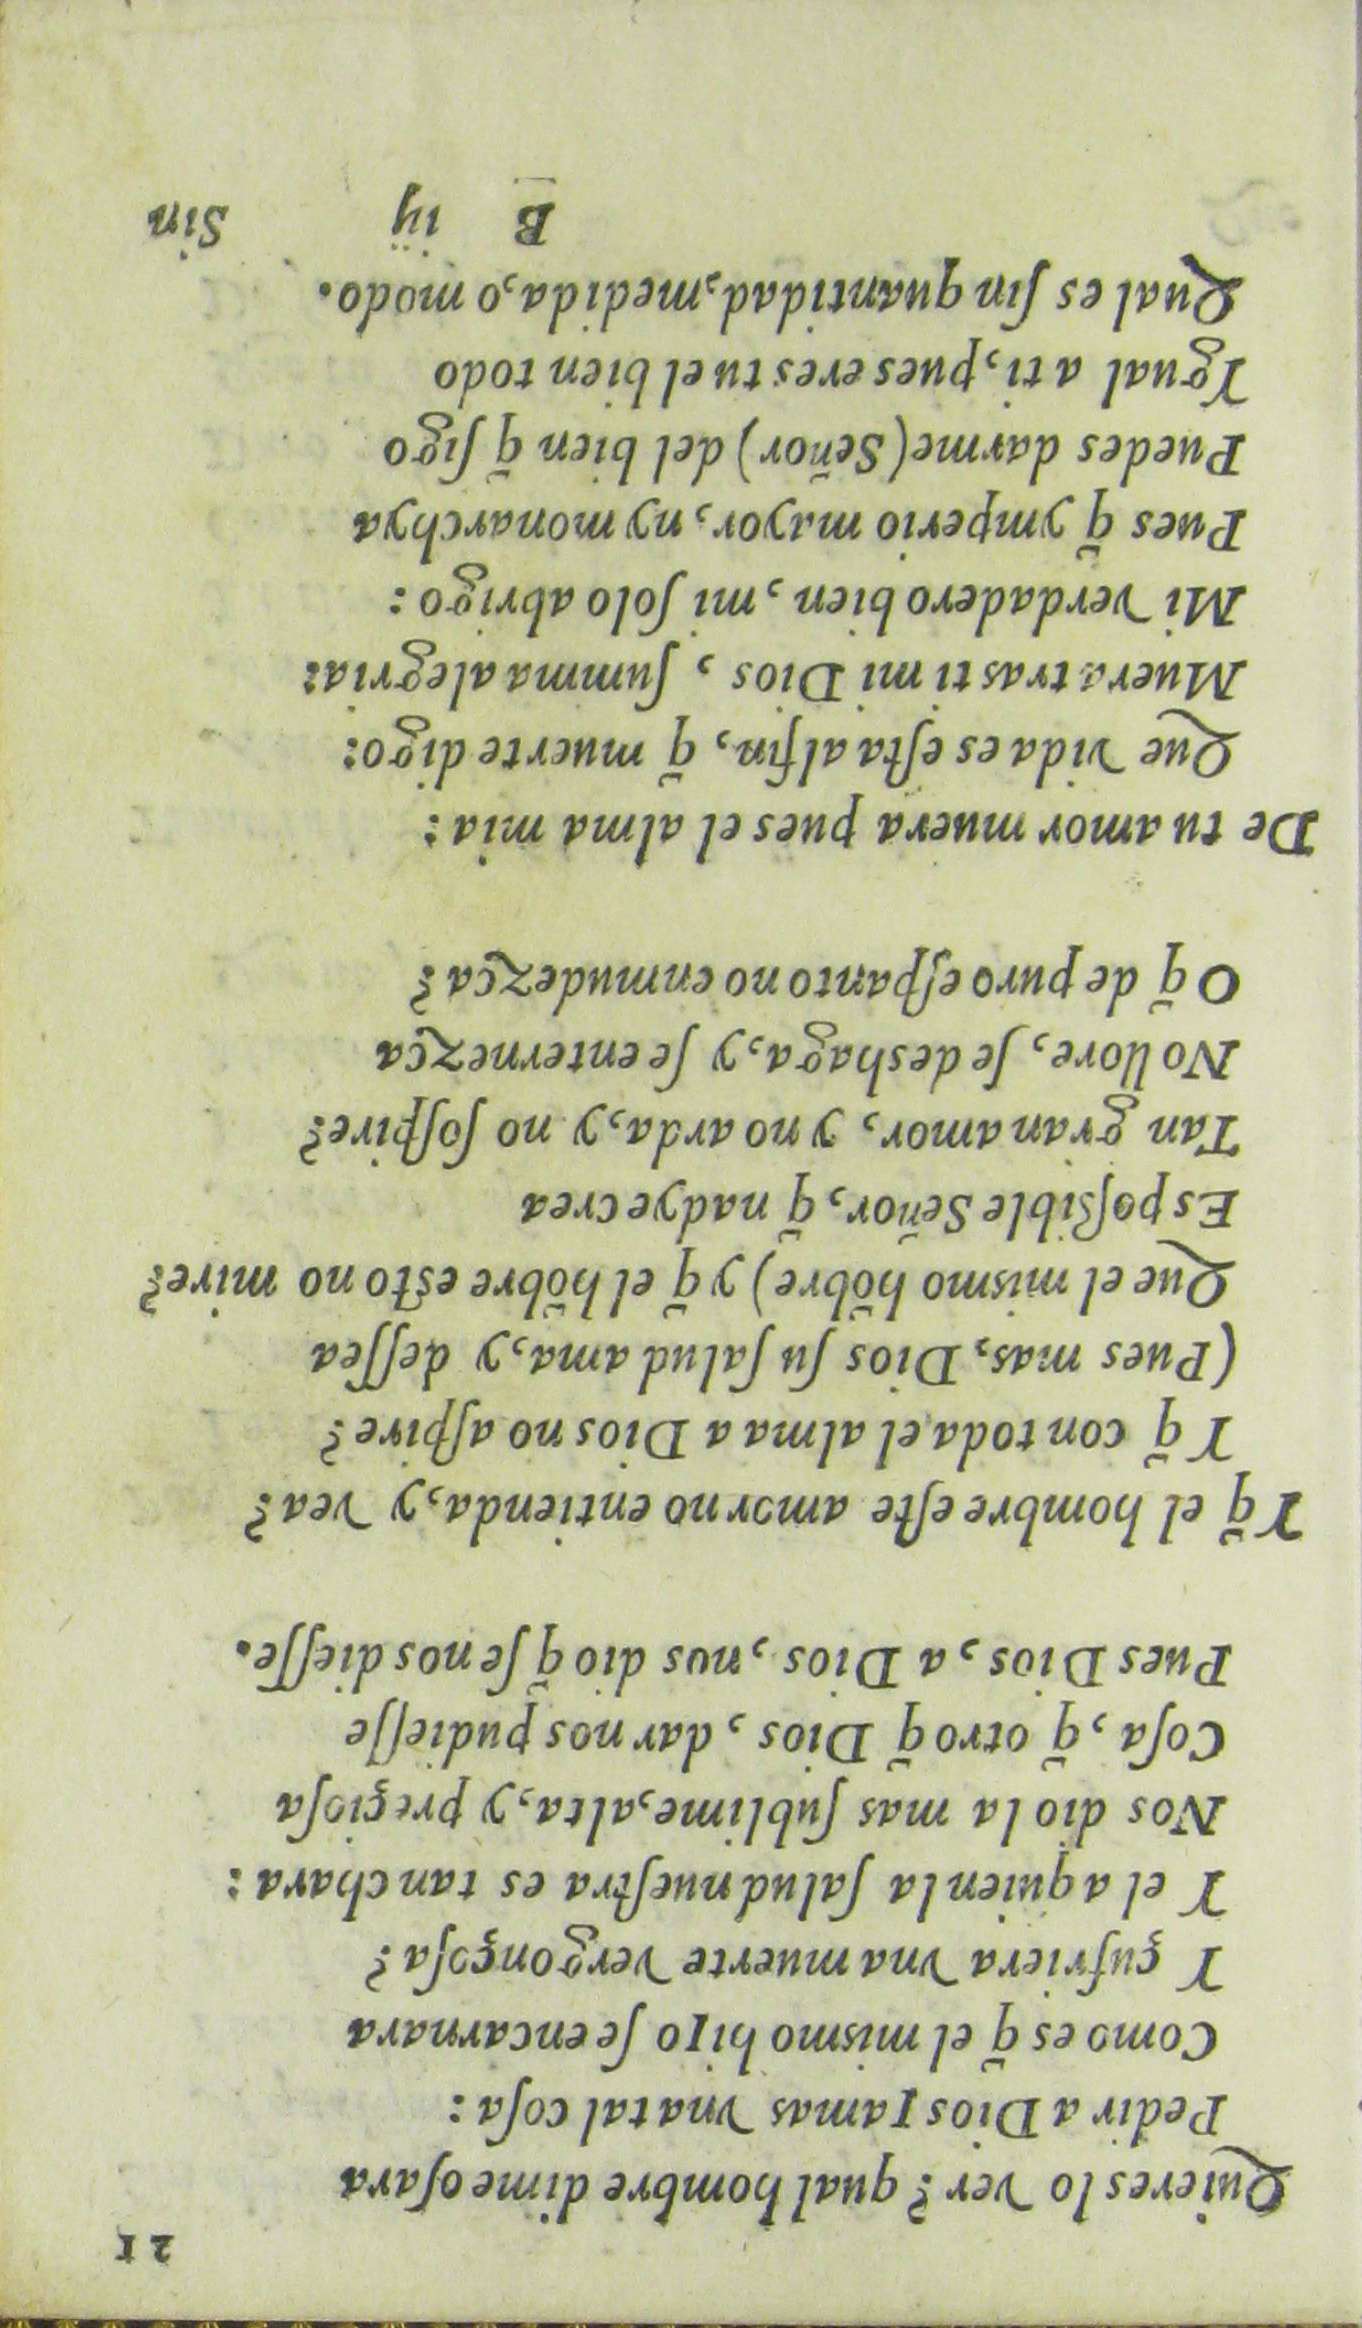 21
Quieres lo ver? qual hombre dime osara
Pedir a Dios Iamas vna tal cosa:
Como es q̃ el mismo hiIo ſe encarnara
Y çufriera vna muerte vergonçoſa?
Y el a quien la ſalud nueſtra es tan chara:
Nos dio la mas ſublime, alta, y preçioſa
Coſa, q̃ otro q̃ Dios, dar nos pudieſſe
Pues Dios, a Dios, nos dio q̃ ſe nos dieſſe.
Y q̃ el hombre eſte amor no entienda, y vea?
Y q̃ con toda el alma a Dios no aſpire?
(Pues mas, Dios ſu ſalud ama, y deſſea
Que el mismo hõbre) y q̃ el hõbre eſto no mire?
Es poſsible Señor, q̃ nadye crea
Tan gran amor, y no arda, y no ſoſpire?
No llore, ſe deshaga, y ſe enternezca
O q̃ de puro eſpanto no enmudezca?
De tu amor muera pues el alma mia:
Que vida es eſta alfin, q̃ muerte digo:
Muera tras ti mi Dios, ſumma alegria:
Mi verdadero bien, mi ſolo abrigo:
Pues q̃ ymperio mayor, ny monarchya
Puedes darme (Señor) del bien q̃ ſigo
Ygual a ti, pues eres tu el bien todo
Qual es ſin quantidad, medida, o modo.
B iij Sin